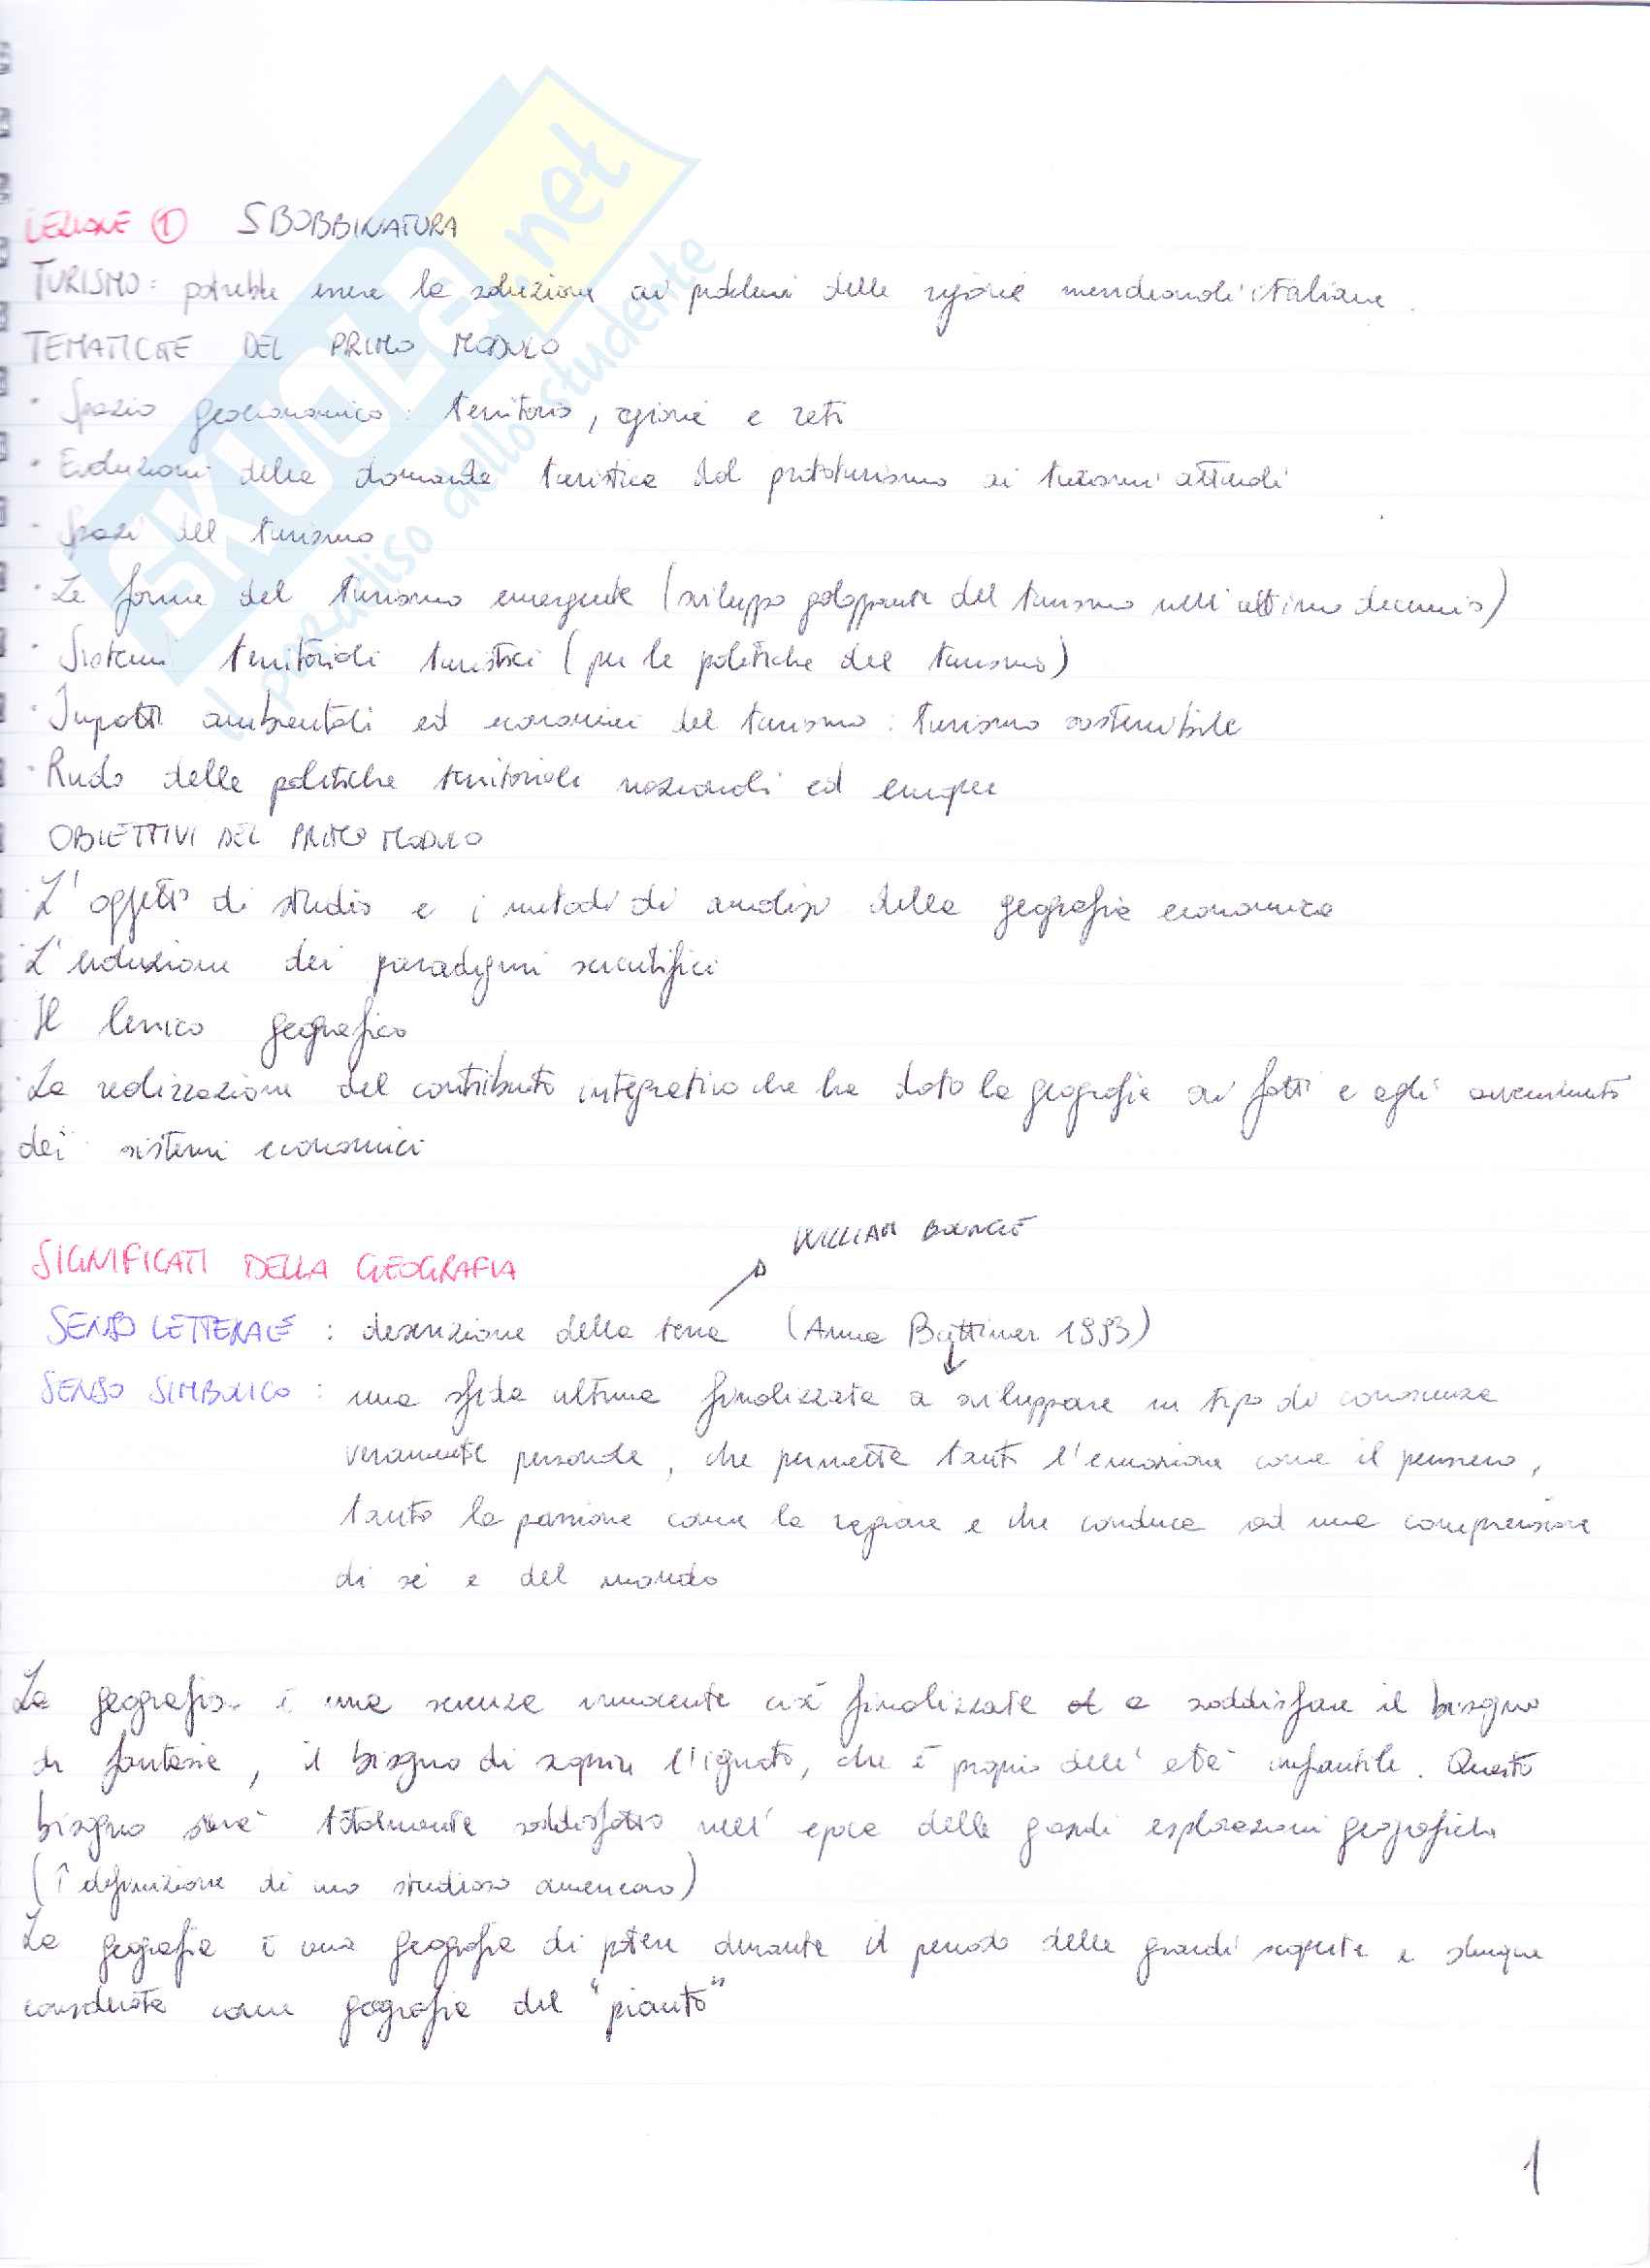 LEZIONE ① SBOBBINATURA
TURISMO: potrebbe essere la soluzione ai problemi delle regioni meridionali italiane.
TEMATICHE DEL PRIMO MODULO
· Spazio geoeconomico: territorio, regioni e reti
· Evoluzioni della domanda turistica dal prototurismo ai turismi attuali
· Spazi del turismo
· Le forme del turismo emergente (sviluppo galoppante del turismo nell'ultimo decennio)
· Sistemi territoriali turistici (per le politiche del turismo)
· Impatti ambientali ed economici del turismo: turismo sostenibile
· Ruolo delle politiche territoriali nazionali ed europee
OBIETTIVI DEL PRIMO MODULO
· L'oggetto di studio e i metodi di analisi della geografia economica
· L'evoluzione dei paradigmi scientifici
· Il lessico geografico
· La realizzazione del contributo integrativo che ha dato la geografia ai fatti e agli avvenimenti
dei sistemi economici
WILLIAM BOUNGE
SIGNIFICATI DELLA GEOGRAFIA
SENSO LETTERALE: descrizione della terra (Anna Buttimer 1993)
SENSO SIMBOLICO: una sfida ultima finalizzata a sviluppare un tipo di conoscenza
veramente personale, che permette tanto l'emozione come il pensiero,
tanto la passione come la ragione e che conduce ad una comprensione
di sé e del mondo
La geografia è una scienza innocente cioè finalizzata a soddisfare il bisogno
di fantasia, il bisogno di scoprire l'ignoto, che è proprio dell'età infantile. Questo
bisogno sarà totalmente soddisfatto nell'epoca delle grandi esplorazioni geografiche
(↑ definizione di uno studioso americano)
La geografia è una geografia di potere durante il periodo delle grandi scoperte e dunque
considerata come geografia del "pianto"
1
SKUOLA.net
il paradiso dello studente